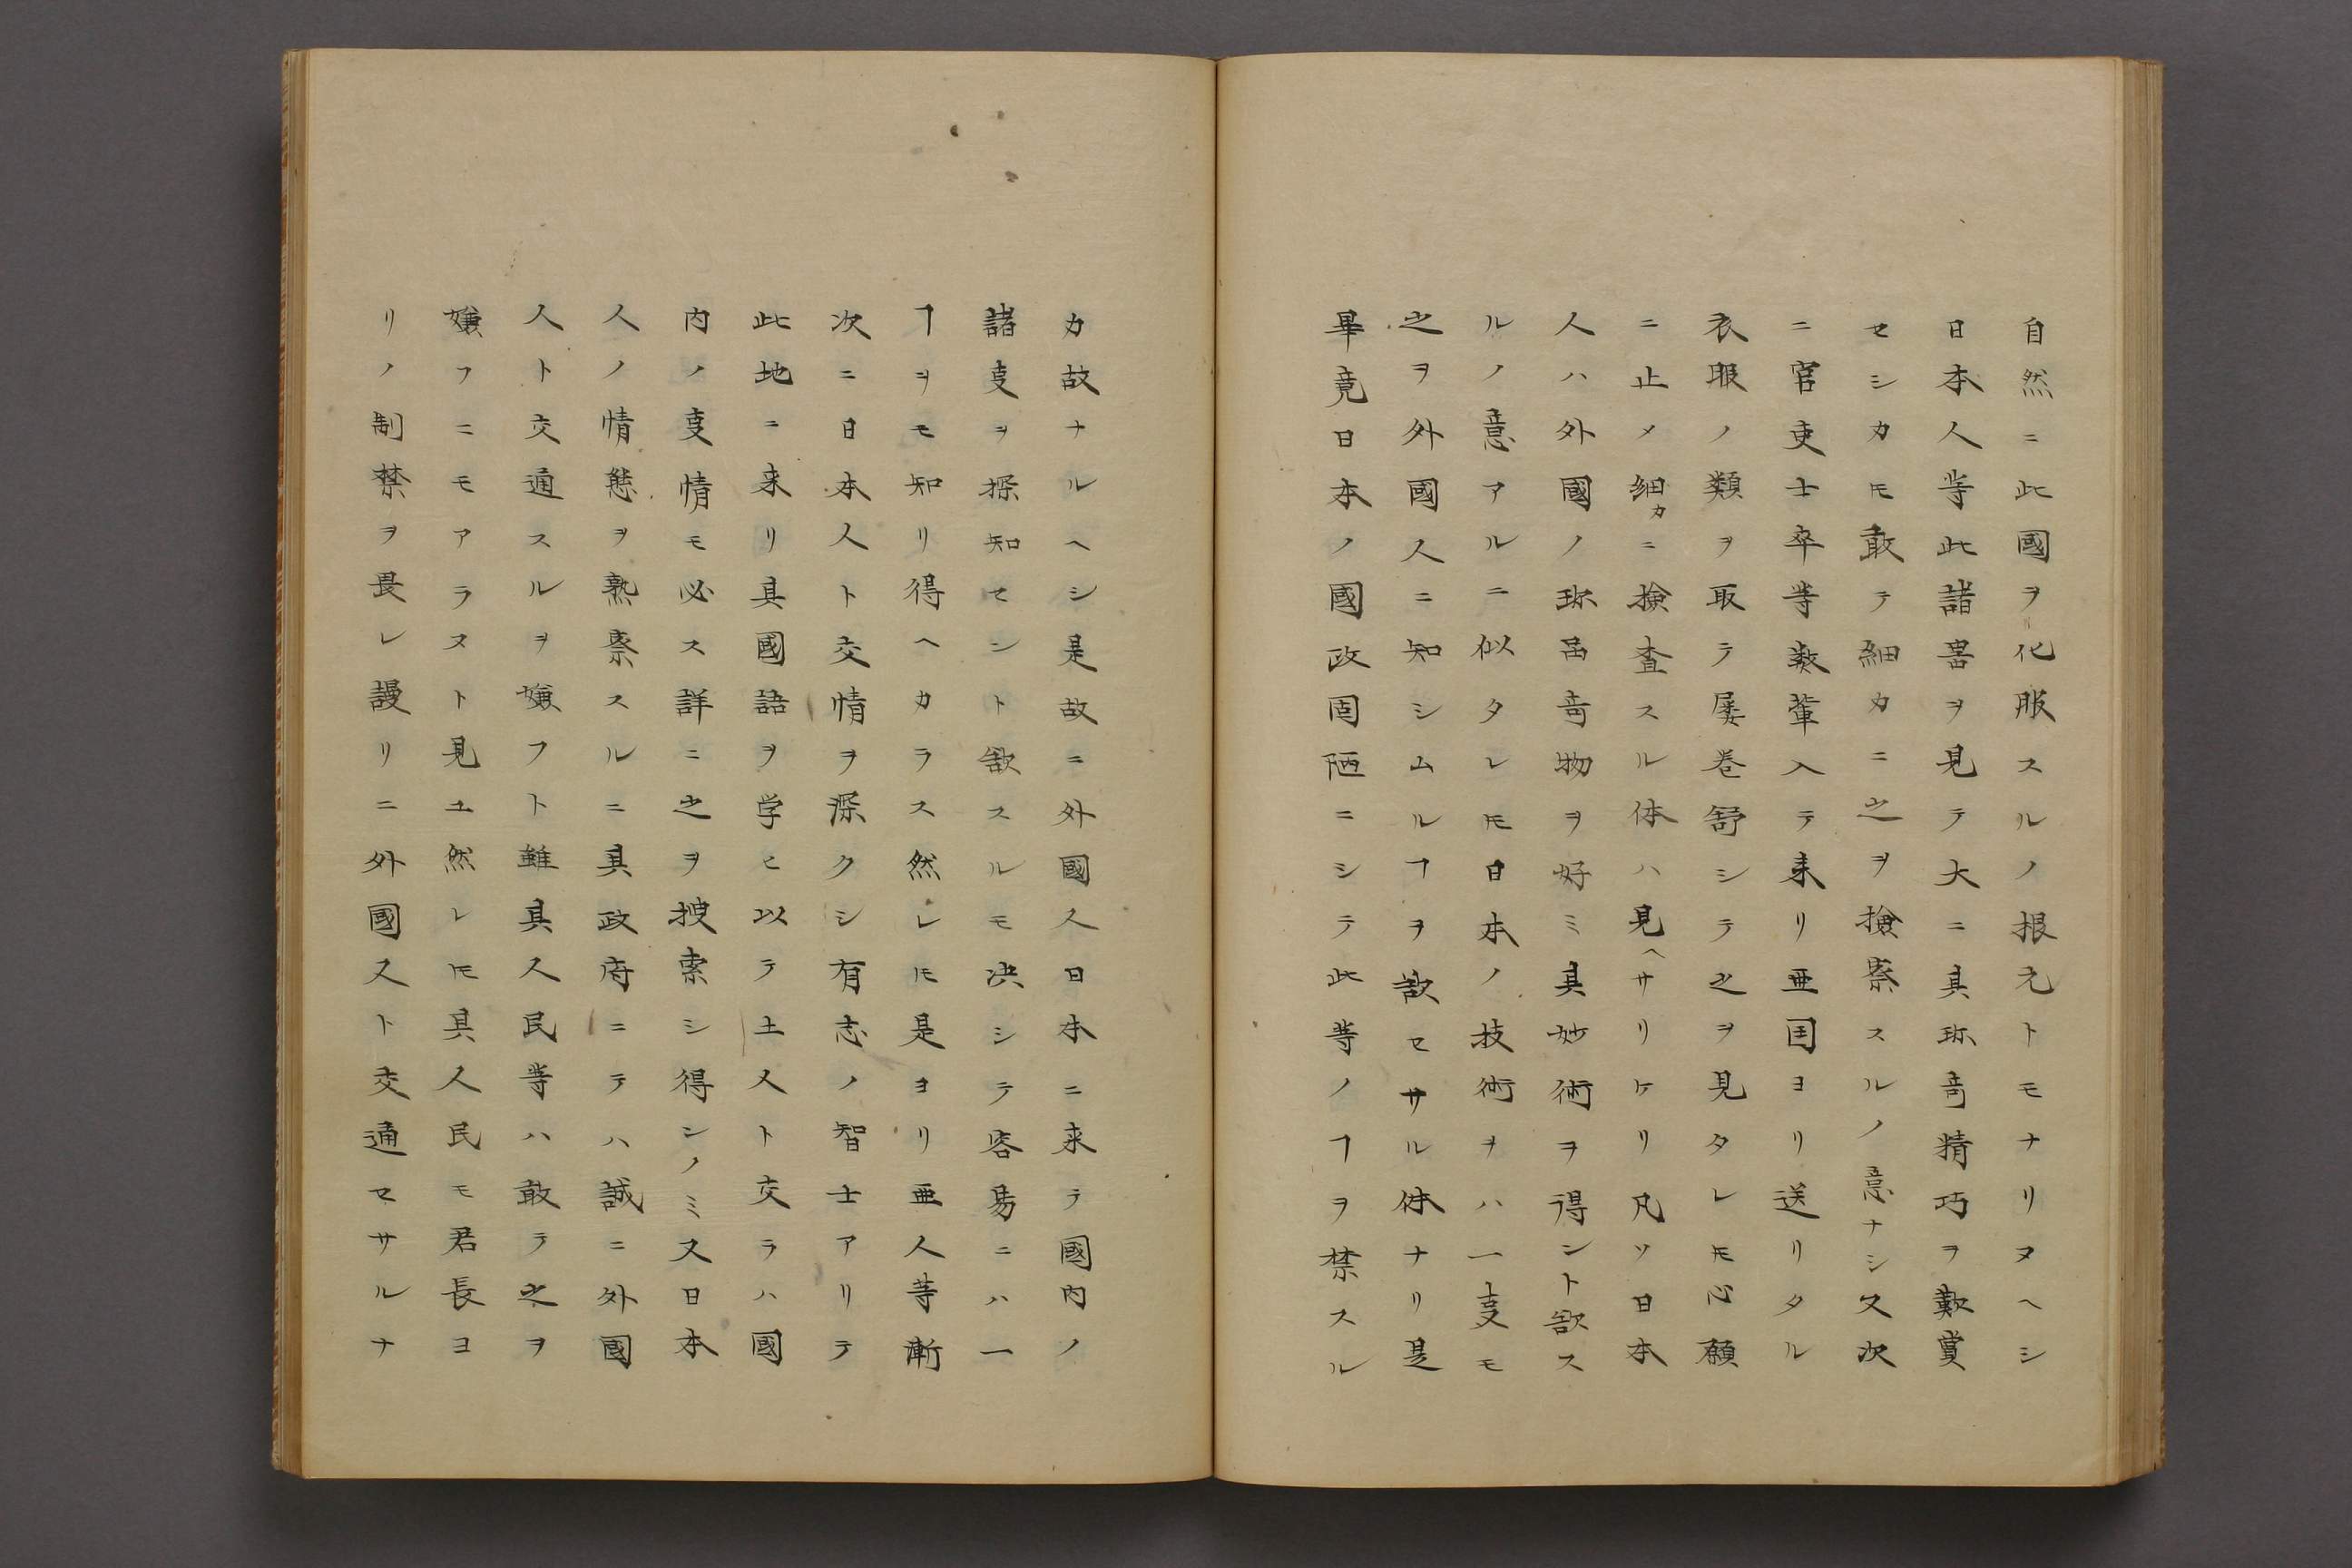 自然ニ此國ヲ化服スルノ根元トモナリヌヘシ
日本人等此諸噐ヲ見テ大ニ其珎奇精巧ヲ歎賞
セシカ𪜈敢テ細カニ之ヲ撿察スルノ意ナシ又次
ニ官吏士卒等数輩入テ来リ亜国ヨリ送リタル
衣服ノ類ヲ取テ屡巻舒シテ之ヲ見タレ𪜈心願
ニ止メ細カニ撿査スル体ハ見ヘサリケリ凡ソ日本
人ハ外國ノ珎噐奇物ヲ好ミ其妙術ヲ得ント欲ス
ルノ意アルニ似タレ𪜈日本ノ技術ヲハ一叓モ
之ヲ外國人ニ知シムルヿヲ欲セサル体ナリ是
畢竟日本ノ國政固陋ニシテ此等ノヿヲ禁スル
カ故ナルヘシ是故ニ外國人日本ニ来テ國内ノ
諸叓ヲ探知セント欲スルモ决シテ容易ニハ一
ヿヲモ知リ得ヘカラス然レ𪜈是ヨリ亜人等漸
次ニ日本人ト交情ヲ深クシ有志ノ智士アリテ
此地ニ来リ其國語ヲ学ヒ以テ土人ト交ラハ國
内ノ叓情モ必ス詳ニ之ヲ捜索シ得ンノミ又日本
人ノ情態ヲ熟察スルニ其政府ニテハ誠ニ外國
人ト交通スルヲ嫌フト雖其人民等ハ敢テ之ヲ
嫌フニモアラヌト見ユ然レ𪜈其人民モ君長ヨ
リノ制禁ヲ畏レ謾リニ外國人ト交通セサルナ